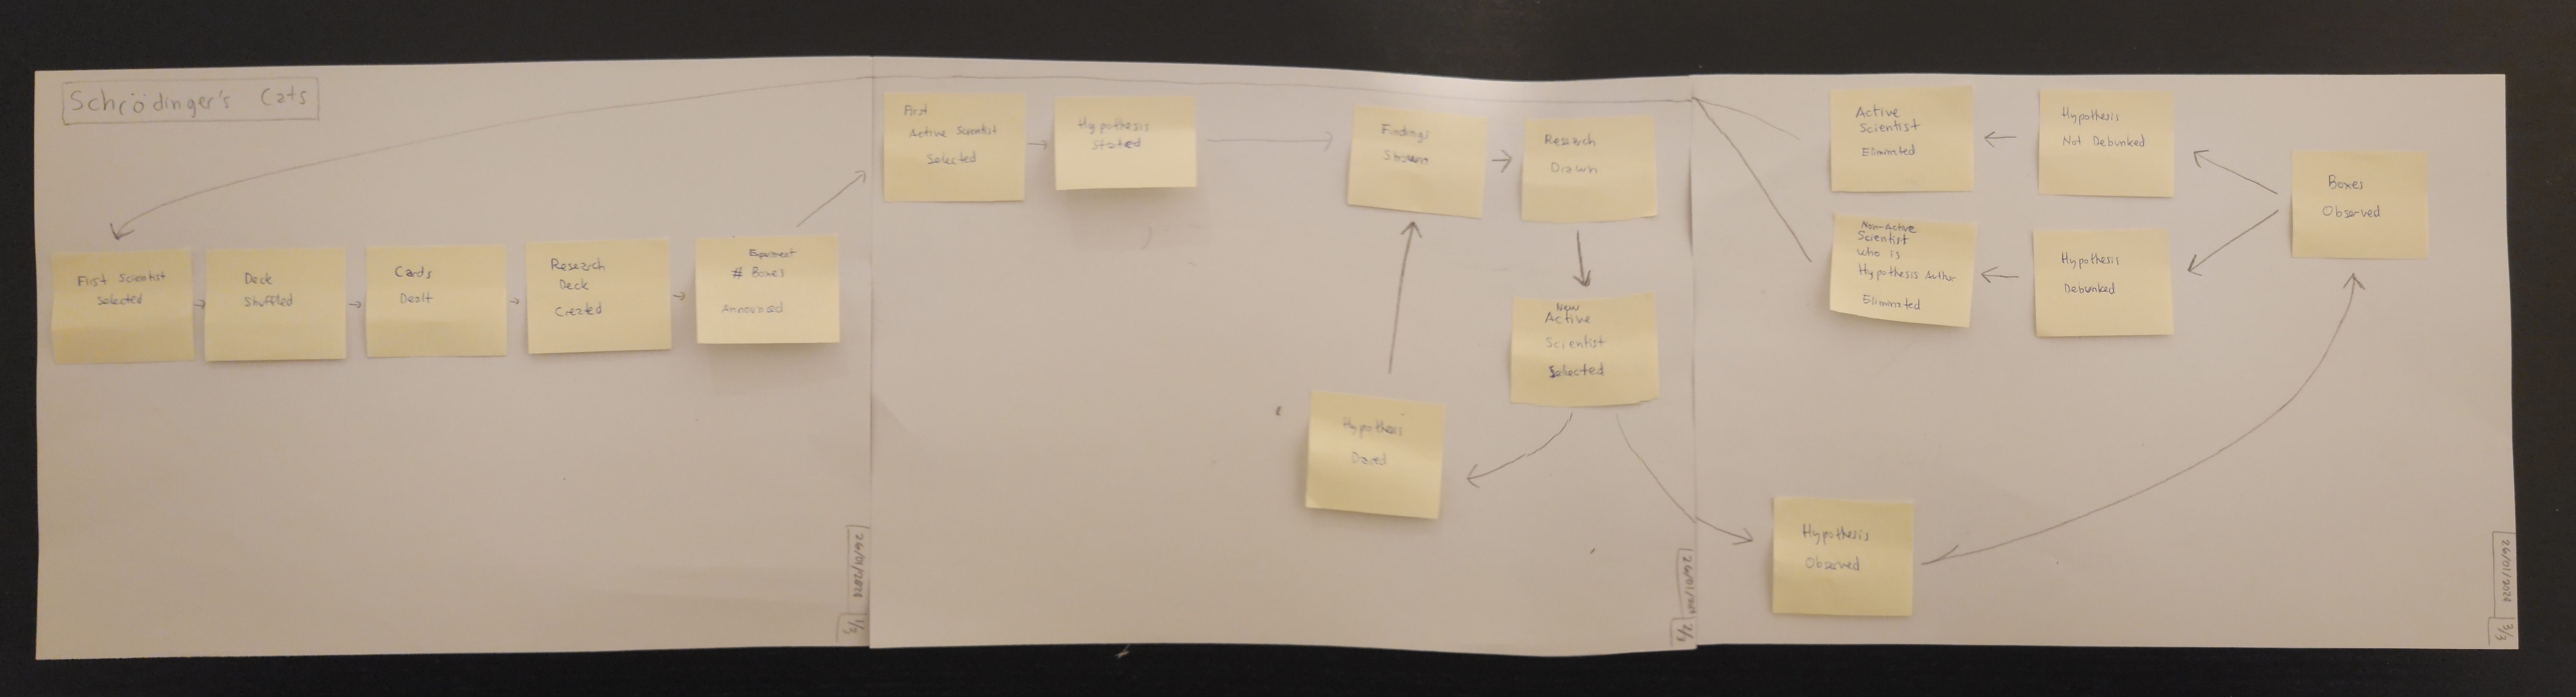 Schrödinger's Cats
First Scientist
Selected
Deck
Shuffled
Cards
Dealt
Research
Deck
Created
Experiment
# Boxes
Announced
26/01/2024
1/3
First
Active Scientist
Selected
Hypothesis
Stated
Findings
Shown
Research
Drawn
New
Active
Scientist
Selected
Hypothesis
Dared
26/01/2024
2/3
Active
Scientist
Eliminted
Hypothesis
Not Debunked
Boxes
Observed
Non-Active
Scientist
who is
Hypothesis Author
Eliminted
Hypothesis
Debunked
Hypothesis
Observed
26/01/2024
3/3